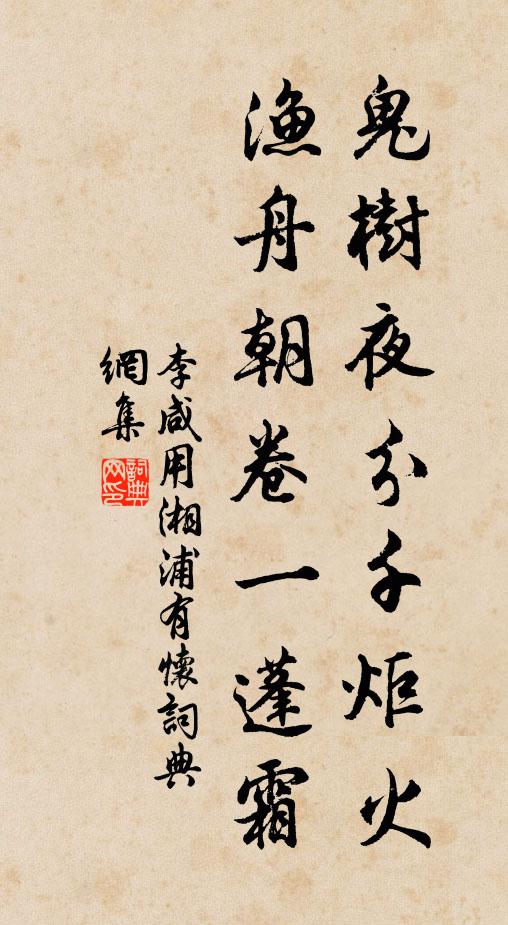 鬼樹夜分千炬火
漁舟朝卷一蓬霜
李咸用湘浦有懷詞典
網集
詞典
网印